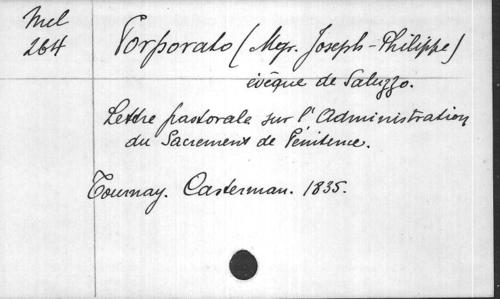 Mel
264
Porporato (Mgr. Joseph-Philippe)
évêque de Saluzzo.
Lettre pastorale sur l'Administration
du Sacrement de Pénitence.
Tournay. Casterman. 1835.